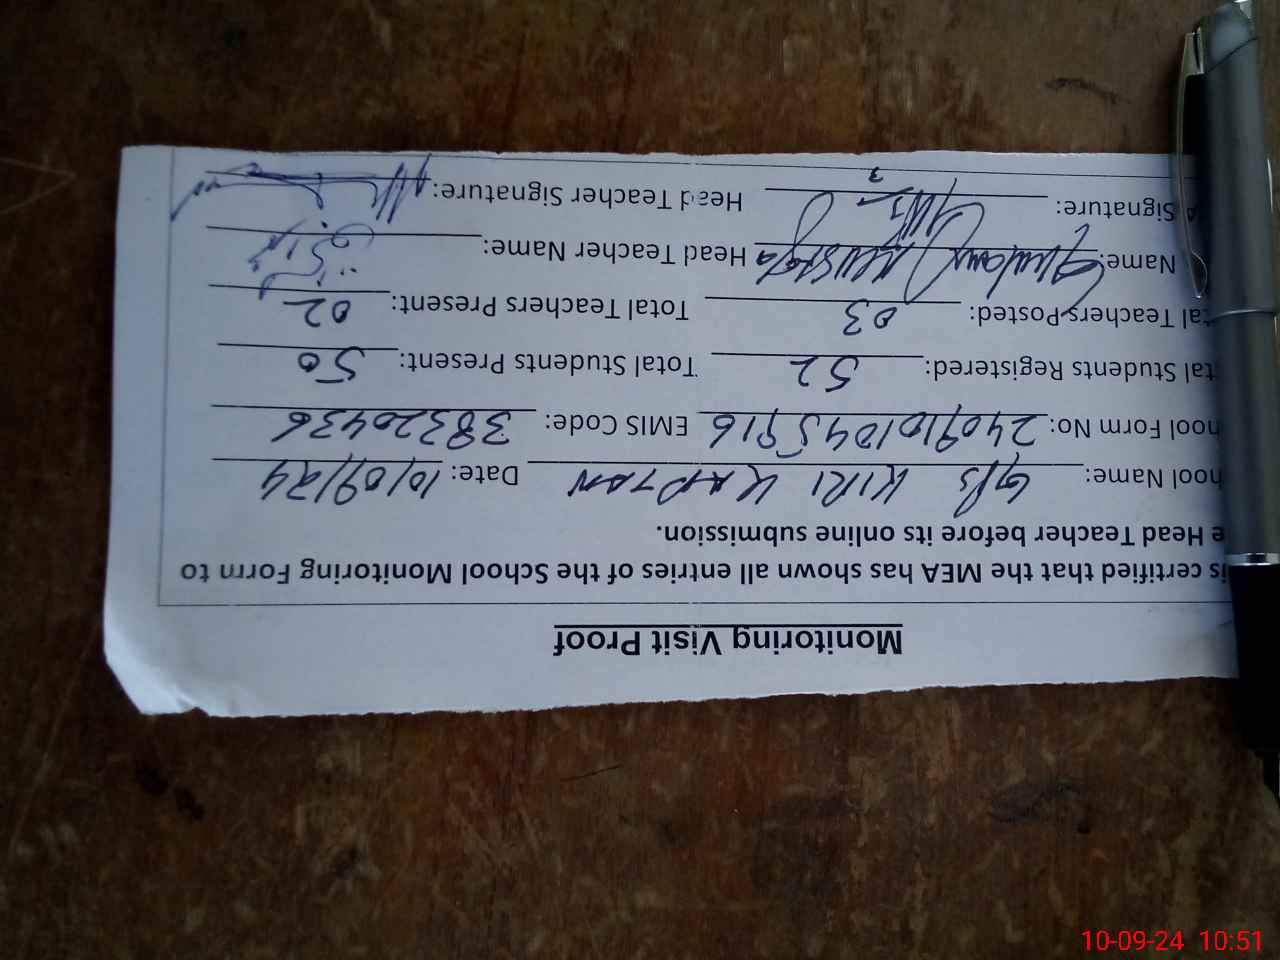 Monitoring Visit Proof
is certified that the MEA has shown all entries of the School Monitoring Form to
e Head Teacher before its online submission.
hool Name: G/s KIRI KAPTAN Date: 10/09/24
hool Form No: 2409101045916 EMIS Code: 38320436
tal Students Registered: 52 Total Students Present: 50
tal Teachers Posted: 03 Total Teachers Present: 02
Name: Head Teacher Name:
A Signature: Head Teacher Signature:
10-09-24 10:51